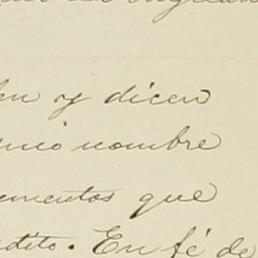 en y dicen
nico nombre
ementos que
dito. En fé de